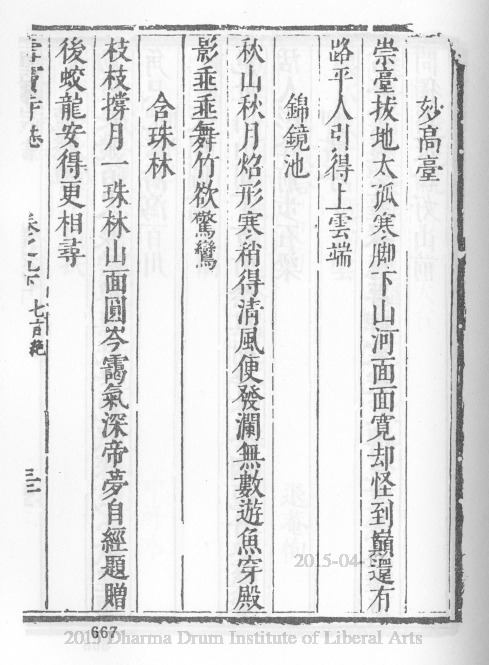 妙高臺
崇臺拔地太孤寒脚下山河面面寛却怪到巔還有
路平人引得上雲端
錦鏡池
秋山秋月焰形寒稍得清風便發瀾無數遊魚穿殿
影垂垂舞竹欲驚鸞
含珠林
枝枝撐月一珠林山面圓岑靄氣深帝夢自經題贈
後蛟龍安得更相尋
寺志
卷之九下
七言絶
三二
2015-04-
667
2015 Dharma Drum Institute of Liberal Arts